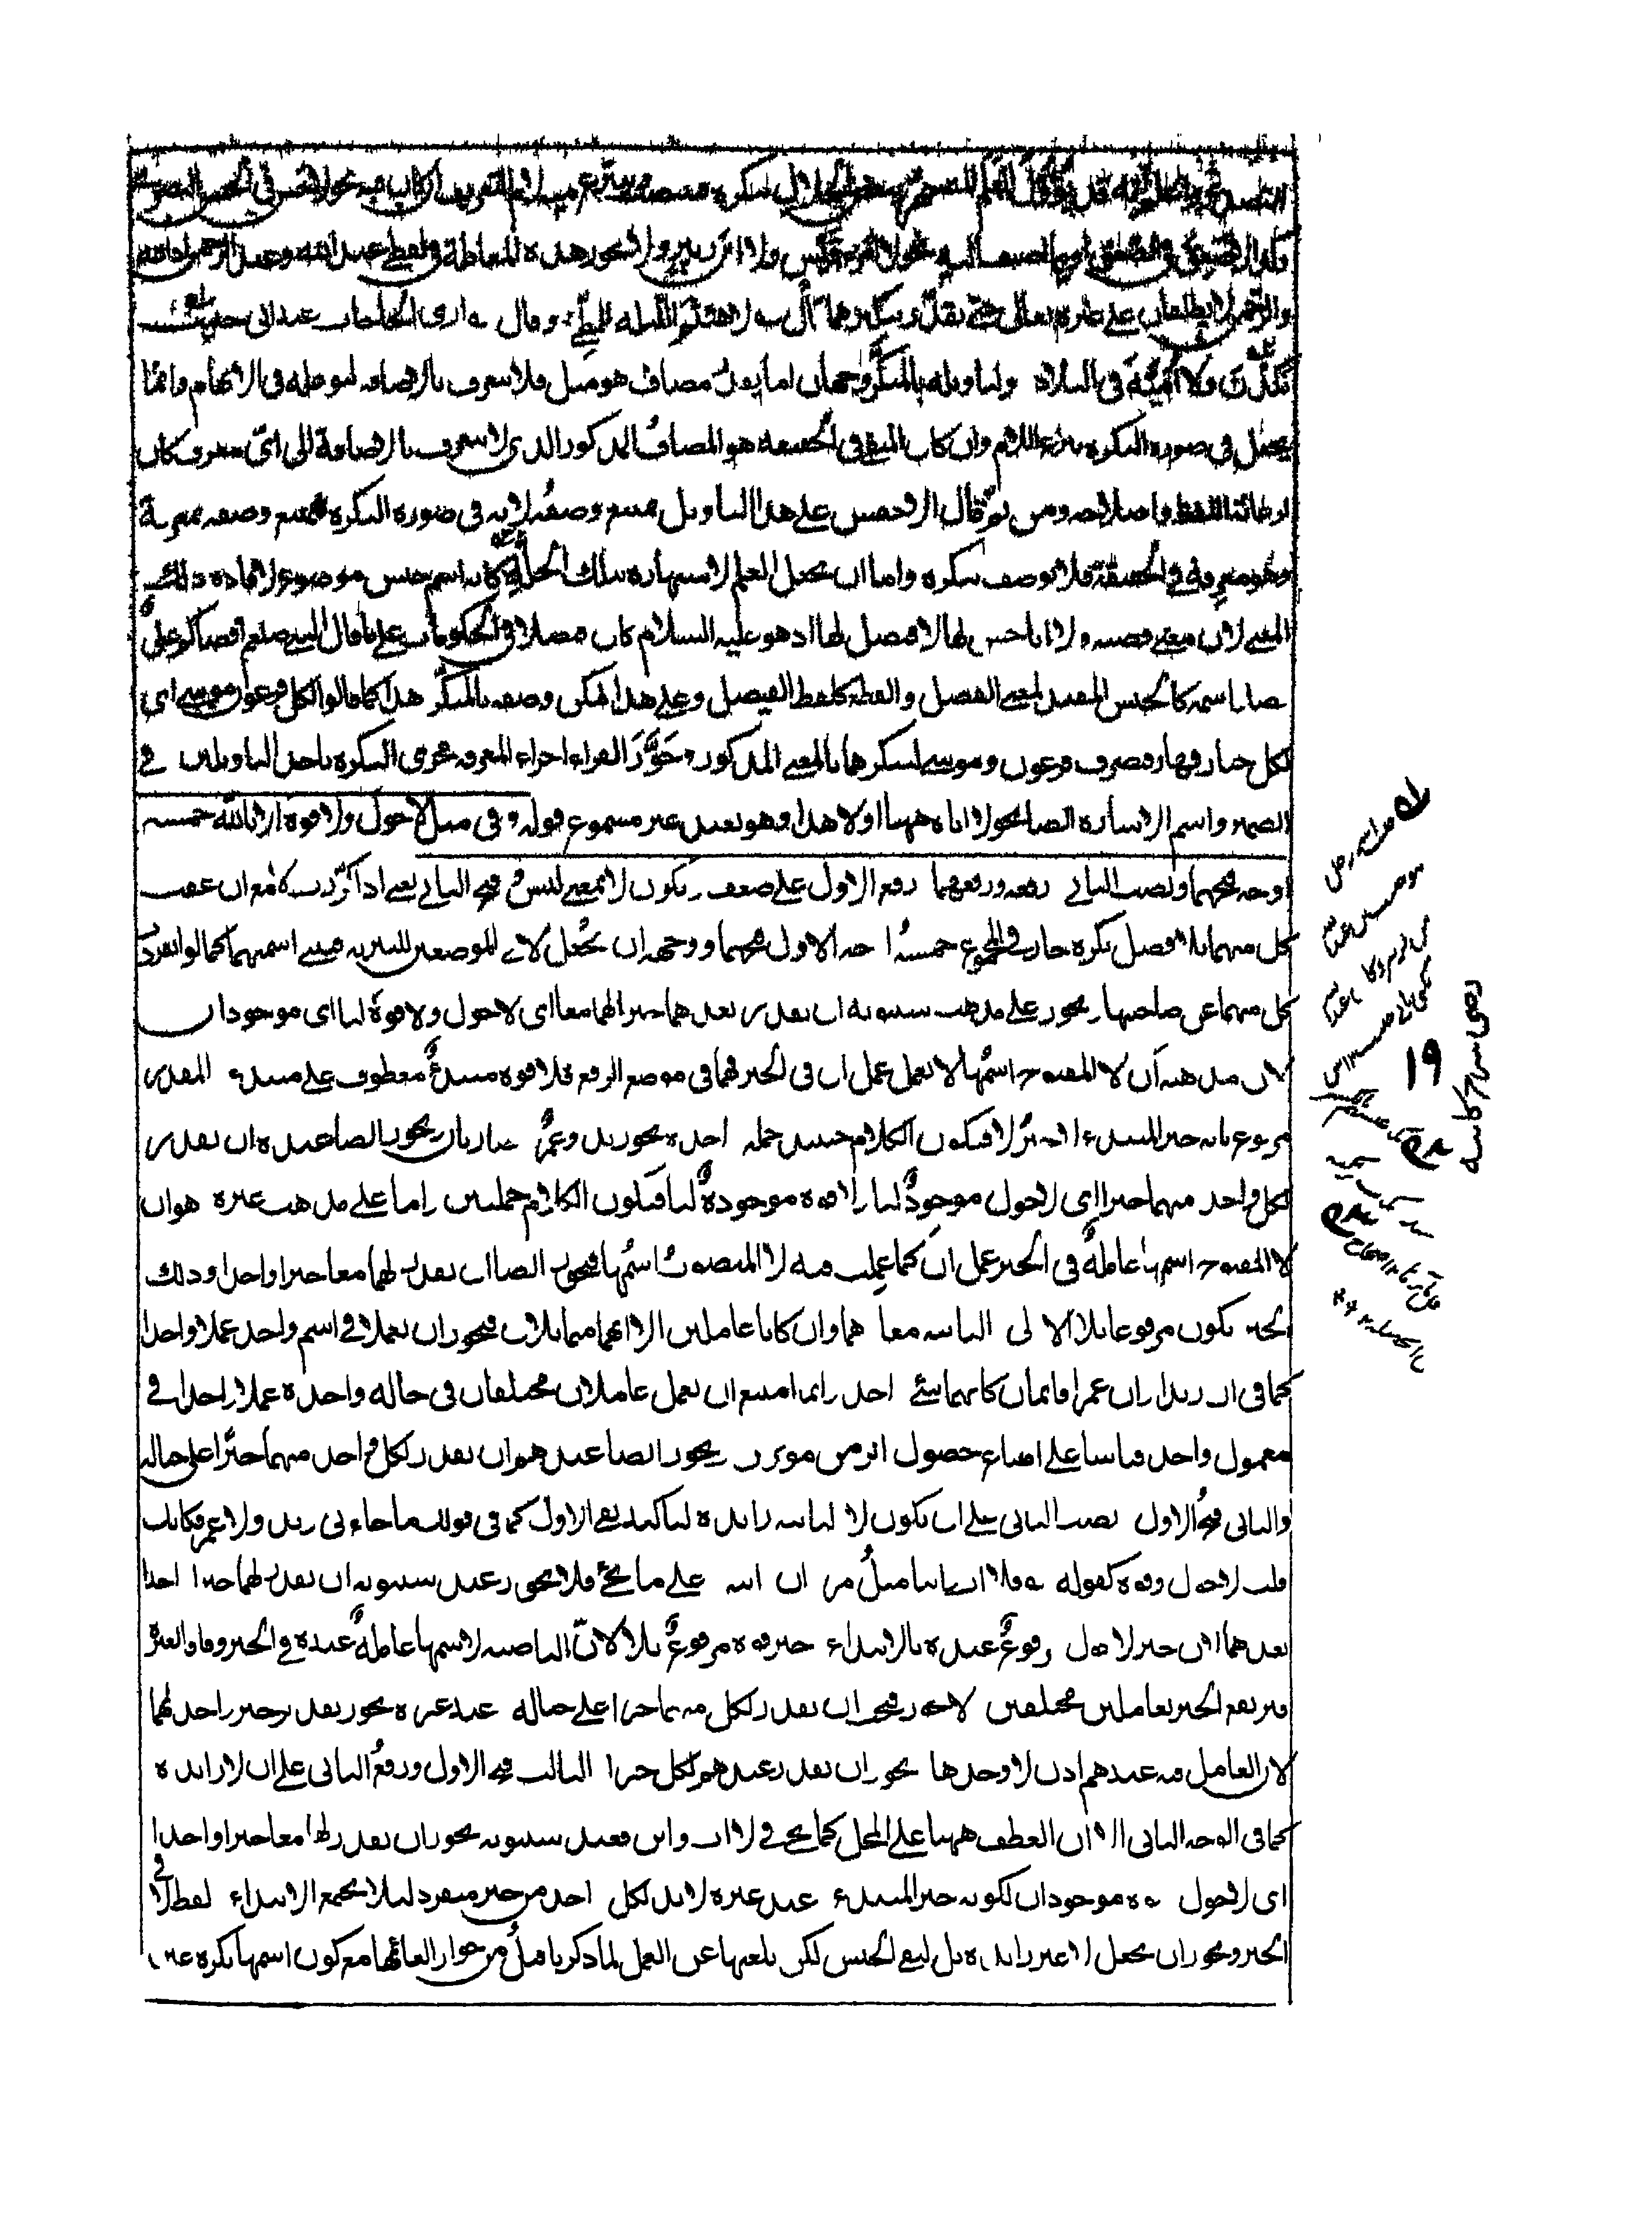 واعلم انه قد يؤول العلم المشتهر ببعض الخلال بنكرة فينتصب وينزع منه لام التعريف ان كان فيه نحو لا حسن في الحسن البصري
وكذا لا صعق في الصعق او مما اضيف اليه نحو لا امرء قيس ولا ابن زبير ولا يجوز هذه المعاملة في لفظي عبد الله وعبد الرحمن اذ الله
والرحمن لا يطلقان على غيره تعالى حتى يقدر تنكيرهما قال لا هيثم الليلة للمطي وقال ارى الحاجات عند ابي خبيب
نكدن ولا امية في البلاد ولتاويله بالمنكر وجهان اما يقدر مضاف هو مثل فلا يتعرف بالاضافة لتوغله في الابهام وانما
يجعل في صورة النكرة بنزع اللام وان كان المنفي في الحقيقة هو المضاف المذكور الذي لا يتعرف بالاضافة الى اي معرف كان
لرعاية اللفظ واصلاحه ومن ثم قال الاخفش على هذا التاويل يمتنع وصفه لانه في صورة النكرة فيمتنع وصفه بمعرفة
وهو معرفة في الحقيقة فلا يوصف بنكرة واما ان يجعل العلم لاشتهاره بتلك الخلة كانه اسم جنس موضوع لافادة ذلك
المعنى لان معنى قضية ولا ابا حسن لها لا فيصل لها اذ هو عليه السلام كان فيصلا في الحكومات على ما قال النبي صلعم اقضاكم علي
صار اسمه كالجنس المفيد لمعنى الفصل والقطع كلفظ الفيصل وعلى هذا يمكن وصفه بالمنكر هذا كما قالوا لكل فرعون موسى اي
لكل جبار قهار فصرف فرعون وموسى لتنكيرهما بالمعنى المذكور وجوّز الفراء اجراء المعرفة مجرى النكرة باحد التاويلين في
الضمير واسم الاشارة ايضا نحو لا اياه ههنا اولا هذا وهو بعيد غير مسموع قوله وفي مثل لا حول ولا قوة الا بالله خمسة
اوجه فتحهما ونصب الثاني ورفعه ورفعهما ورفع الاول على ضعف ويكون لا بمعنى ليس وفتح الثاني يعني اذا كررت لا مع ان عقيب
كل منهما بلا فصل نكرة جاز في المجموع خمسة اوجه الاول فتحهما ووجهه ان تجعل لا في الموضعين للتبرية فيبنى اسمهما كما لو انفرد
كل منهما عن صاحبها ويجوز على مذهب سيبويه ان يقدر بعدهما خبر لهما معا اي لا حول ولا قوة لنا اي موجودان
لان مذهبه ان لا المفتوح اسمها لا تعمل عمل ان في الخبر فهما في موضع الرفع فلا قوة مبتدأ معطوف على مبتدء المقدر
مرفوع بانه خبر المبتدء الا خبر لا فيكون الكلام حينئذ جملة واحدة نحو زيد وعمرو ضاربان ويجوز ايضا عنده ان يقدر
لكل واحد منهما خبرا اي لا حول موجود لنا ولا قوة موجودة لنا فيكون الكلام جملتين واما على مذهب غيره وهو ان
لا المفتوح اسمها عاملة في الخبر عمل ان كما عملت فيه لا المنصوب اسمها فيجوز ايضا ان يقدر لهما معا خبرا واحدا وذلك
الخبر يكون مرفوعا بلا الاولى والثانية معا وهما وان كانا عاملين الا انهما متماثلان فيجوز ان يعملا في اسم واحد عملا واحدا
كما في ان زيدا وان عمرا قائمان كانهما شيء واحد وانما امتنع ان يعمل عاملان مختلفان في حالة واحدة عملا واحدا في
معمول واحد قياسا على امتناع حصول اثر من موثرين ويجوز ايضا عندهم ان يقدر لكل واحد منهما خبرا على حياله
والثاني فتح الاول ونصب الثاني على ان يكون لا الثانية زايدة لتاكيد نفي الاول كما في قولك ما جاءني زيد ولا عمرو فكانك
قلت لا حول وقوة كقوله فلا اب وابنا مثل مروان وابنه على ما يجئ فلا يجوز عند سيبويه ان يقدر لهما خبرا واحدا
بعدهما لان خبر لا حول مرفوع عنده بالابتداء وخبر قوة مرفوع بلا لان الناصبة لاسمها عاملة عنده في الخبر وفاقا لغيره
فيرتفع الخبر بعاملين مختلفين ولا يجوز فيجب ان يقدر لكل منهما خبرا على حياله وعند غيره يجوز تقدير خبر واحد لهما
لان العامل فيه عندهم اذن لا وحدها ويجوز ان يقدر عندهم لكل خبرا الثالث فتح الاول ورفع الثاني على ان لا زايدة
كما في الوجه الثاني الا ان العطف ههنا على المحل كما يجئ في لا اب وابن فعند سيبويه يجوز ان يقدر لهما معا خبرا واحدا
اي لا حول وقوة موجودان لكونه خبر المبتدء وعند غيره لا بد لكل واحد من خبر منفرد لئلا يجتمع الابتداء ولفظ لا في
الخبر ويجوز ان يجعل لا غير زايدة بل لنفي الجنس لكن يلغيها عن العمل لما ذكرنا من جواز الغائها مع كون اسمها نكرة غير
١٩